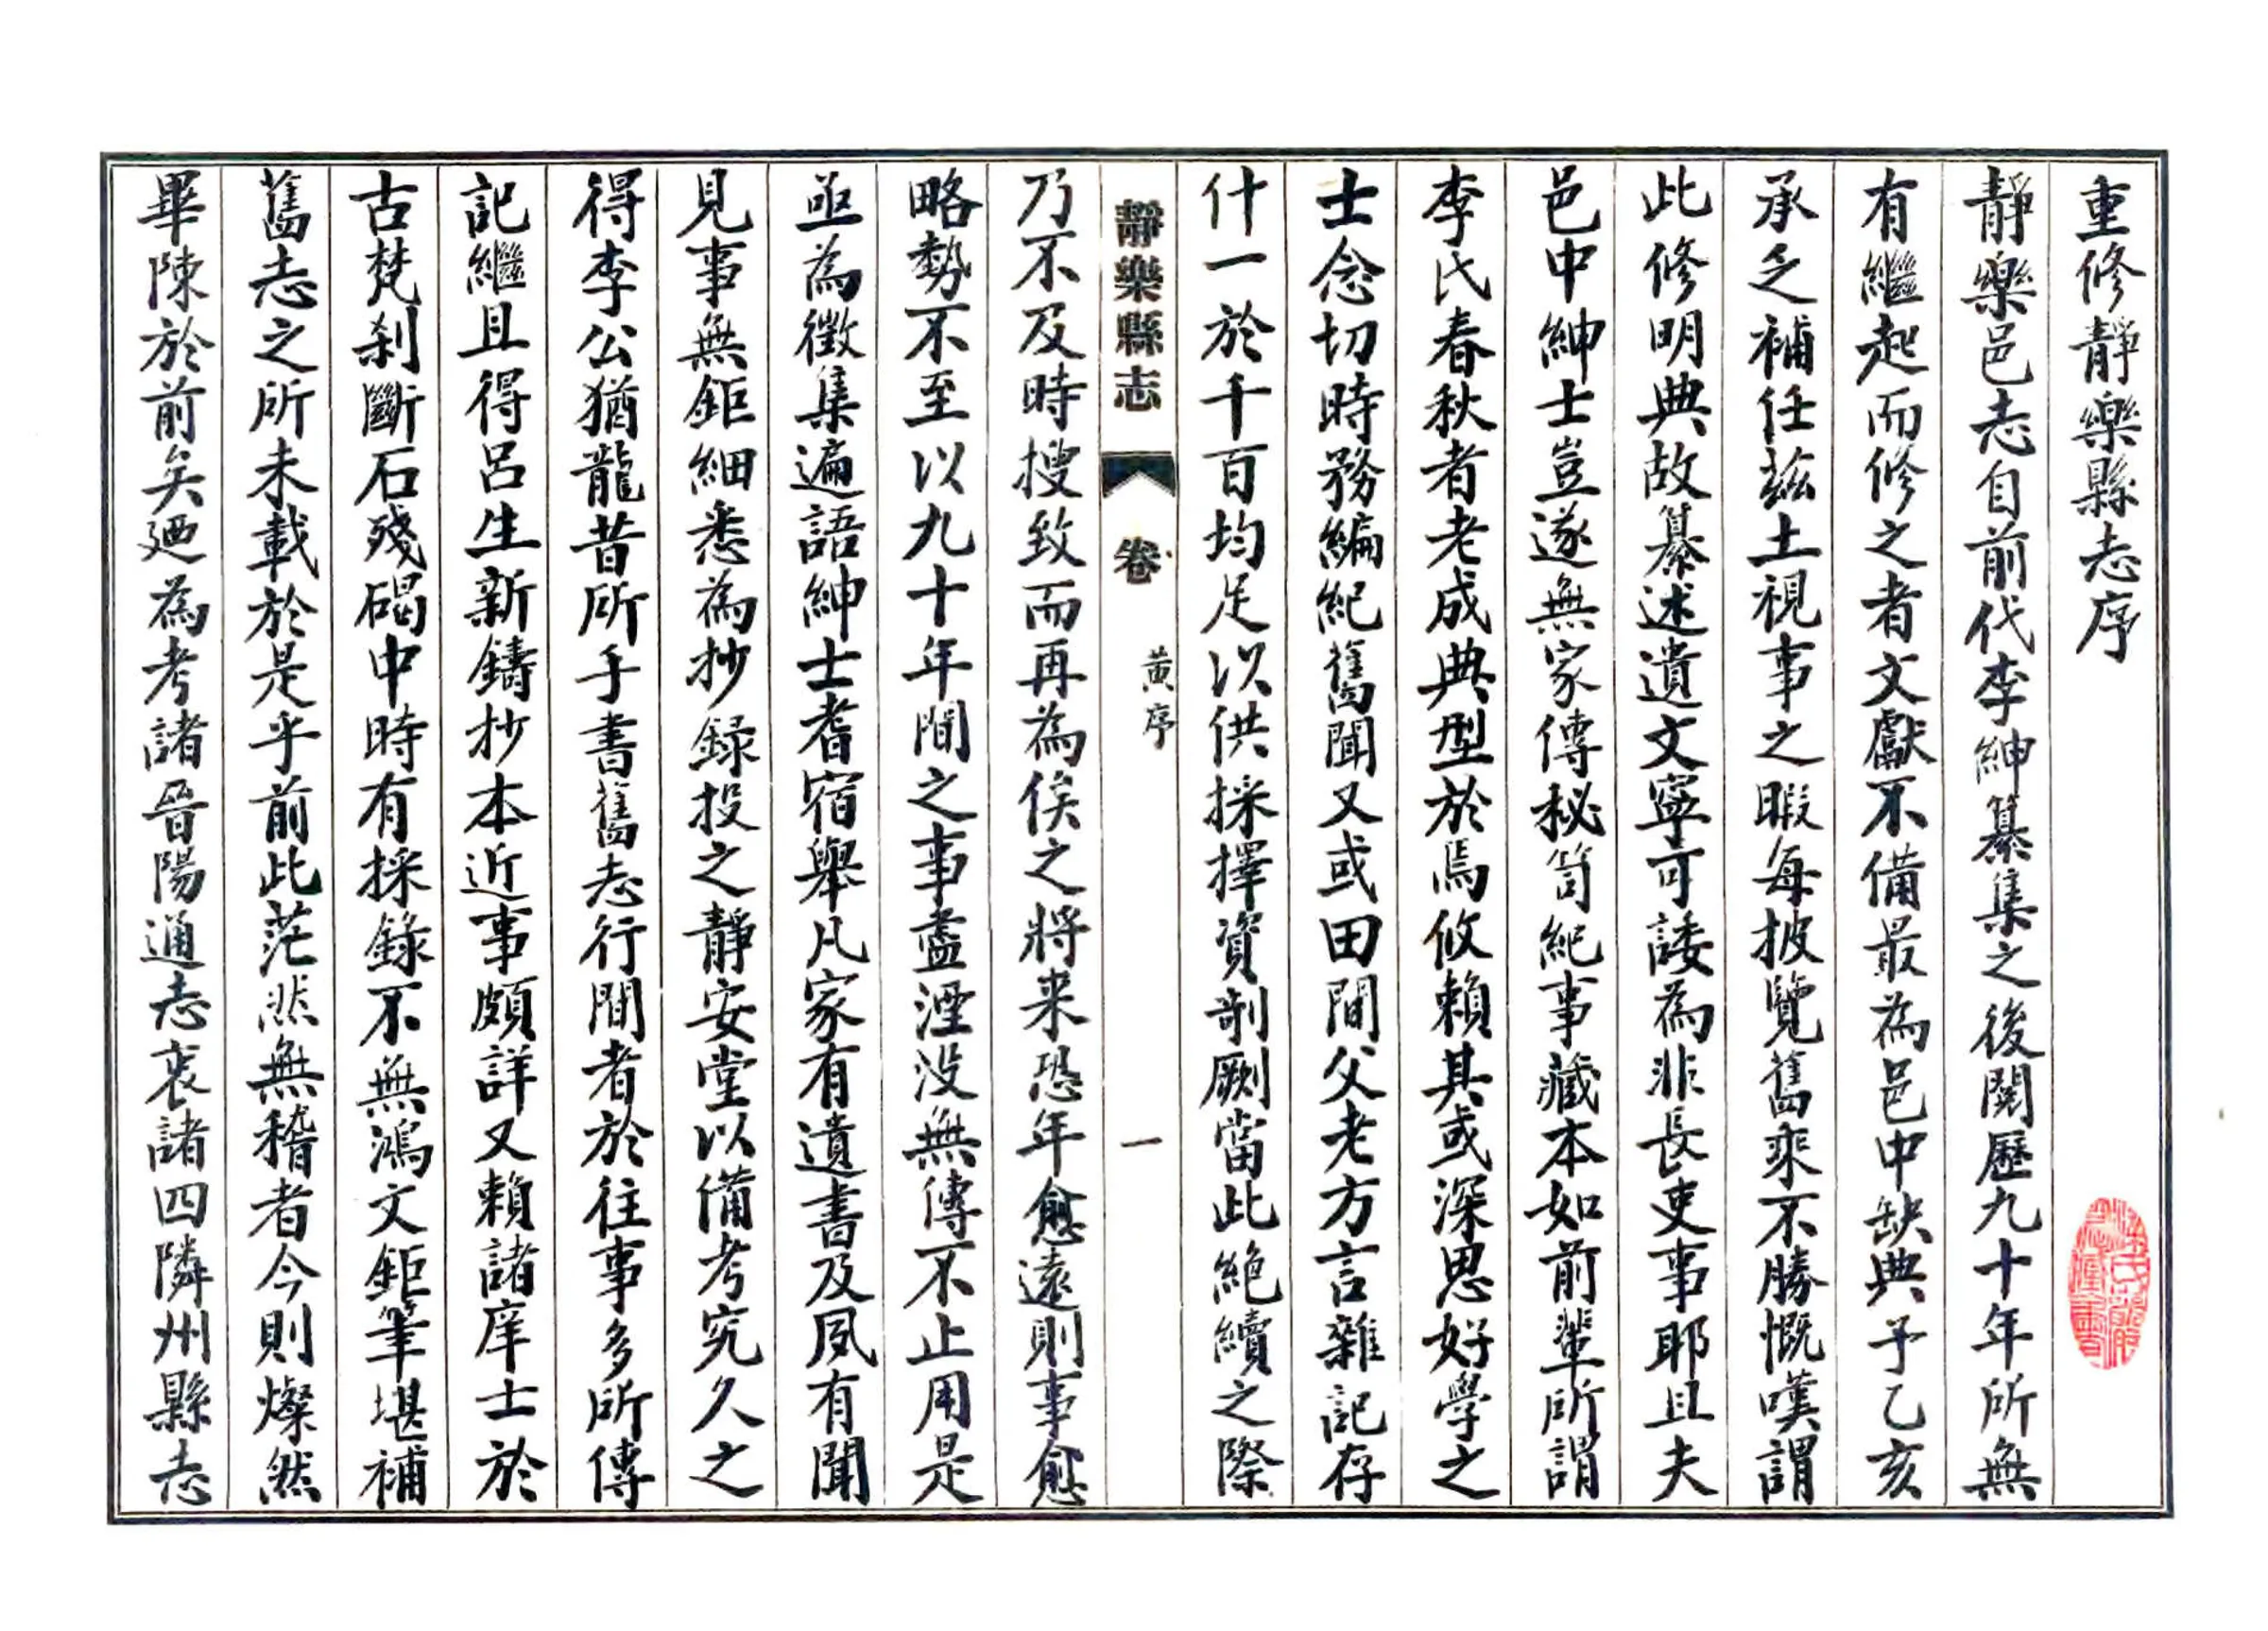 重修靜樂縣志序
靜樂邑志自前代李紳纂集之後閱歷九十年所無
有繼起而修之者文獻不備最為邑中缺典予乙亥
承乏補任茲土視事之暇每披覽舊乘不勝慨嘆謂
此修明典故纂述遺文寧可諉為非長吏事耶且夫
邑中紳士豈遂無家傳秘笥紀事藏本如前輩所謂
李氏春秋者老成典型於焉攸賴其或深思好學之
士念切時務編紀舊聞又或田間父老方言雜記存
什一於千百均足以供採擇資剞劂當此絕續之際
靜樂縣志 卷 黃序 一
乃不及時搜致而再為俟之將来恐年愈遠則事愈
略勢不至以九十年間之事盡湮沒無傳不止用是
亟為徵集遍語紳士耆宿舉凡家有遺書及夙有聞
見事無鉅細悉為抄録投之靜安堂以備考究久之
得李公猶龍昔所手書舊志行間者於往事多所傳
記繼且得呂生新鑄抄本近事頗詳又賴諸庠士於
古梵刹斷石殘碣中時有採錄不無鴻文鉅筆堪補
舊志之所未載於是乎前此茫然無稽者今則燦然
畢陳於前矣廼為考諸晉陽通志衷諸四隣州縣志